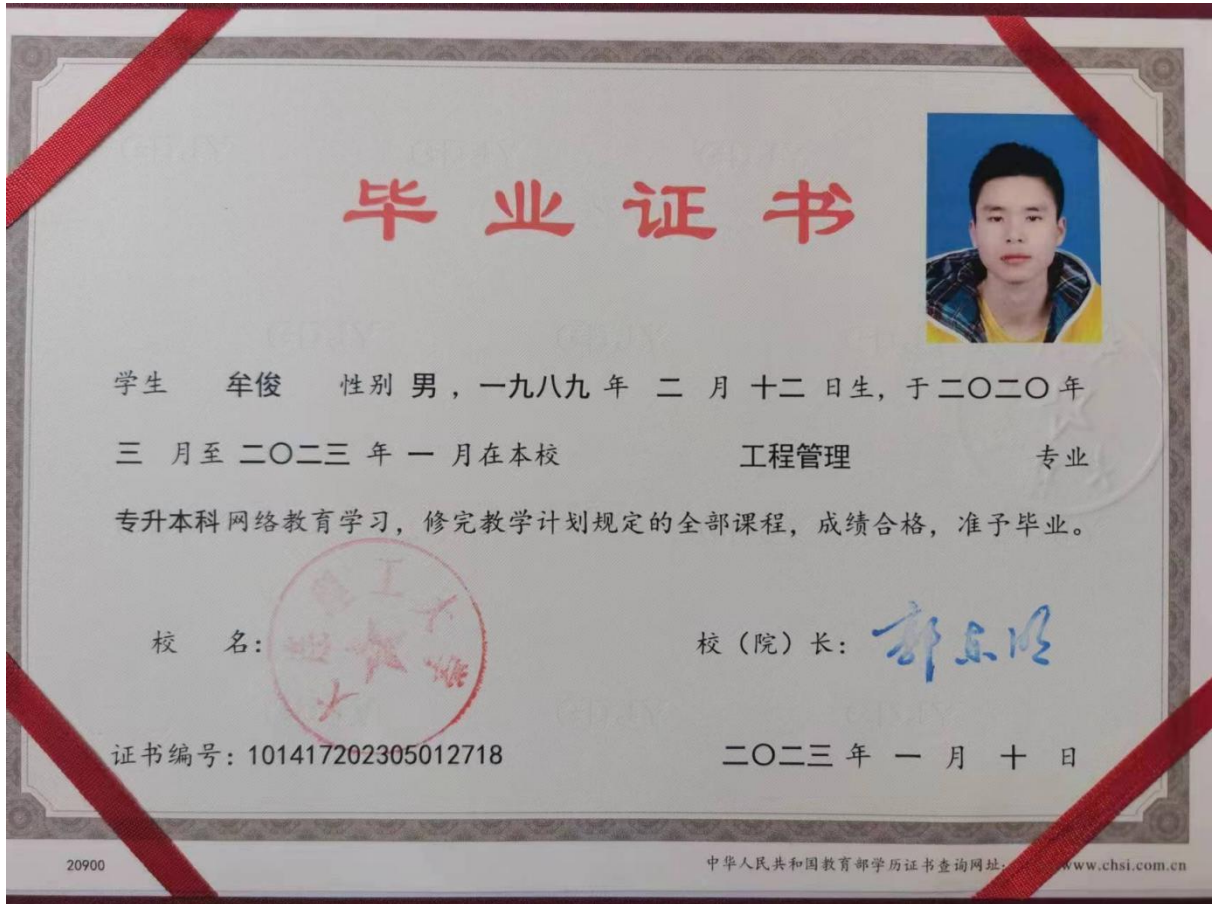 毕业证书
学生 牟俊 性别 男，一九八九 年 二 月 十二 日生，于 二〇二〇 年
三 月至 二〇二三 年 一 月在本校 工程管理 专业
专升本科 网络教育学习，修完教学计划规定的全部课程，成绩合格，准予毕业。
校 名： 大连理工大学
校（院）长： 郭东明
证书编号：101417202305012718 二〇二三 年 一 月 十 日
20900 中华人民共和国教育部学历证书查询网址： www.chsi.com.cn